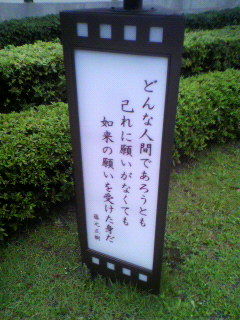 どんな人間であろうとも
己れに願いがなくても
如来の願いを受けた身だ
藤元正樹